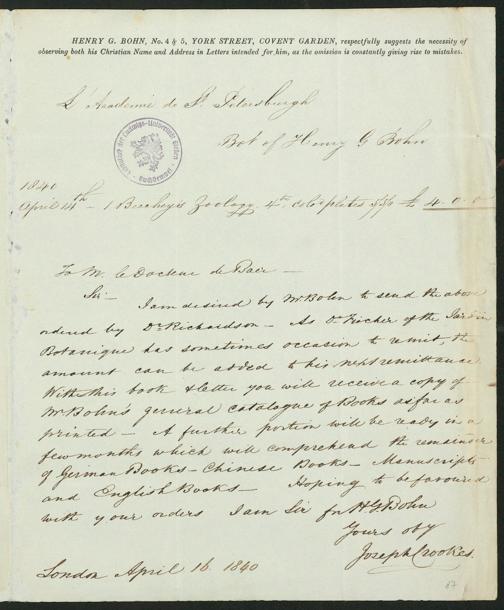 HENRY G. BOHN, No. 4 & 5, YORK STREET, COVENT GARDEN, respectfully suggests the necessity of
observing both his Christian Name and Address in Letters intended for him, as the omission is constantly giving rise to mistakes.
L'Academie de St. Petersburgh
Bot of Henry G Bohn
1840
April 14th - 1 Beechey's Zoology 4to colo plates £ 4. 0. 0
To M. le Docteur de Baer —
Sir:- I am desired by Mr Bohn to send the above
ordered by Dr Richardson - As Dr Fischer of the Jardin
Botanique has sometimes occasion to remit, the
amount can be added to his next remittance.
With this book & letter you will receive a copy of
Mr Bohn's general catalogue of Books as far as
printed - A further portion will be ready in a
few months which will comprehend the remainder
of German Books - Chinese Books - Manuscripts
and English Books - Hoping to be favoured
with your orders I am Sir for H G Bohn
Yours oby
Joseph Crookes.
London April 16. 1840
87